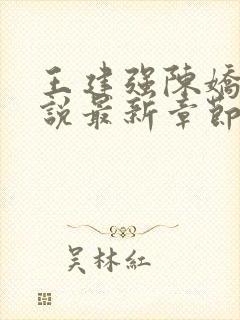 王建强陳嬌
說最新章節
吴林紅